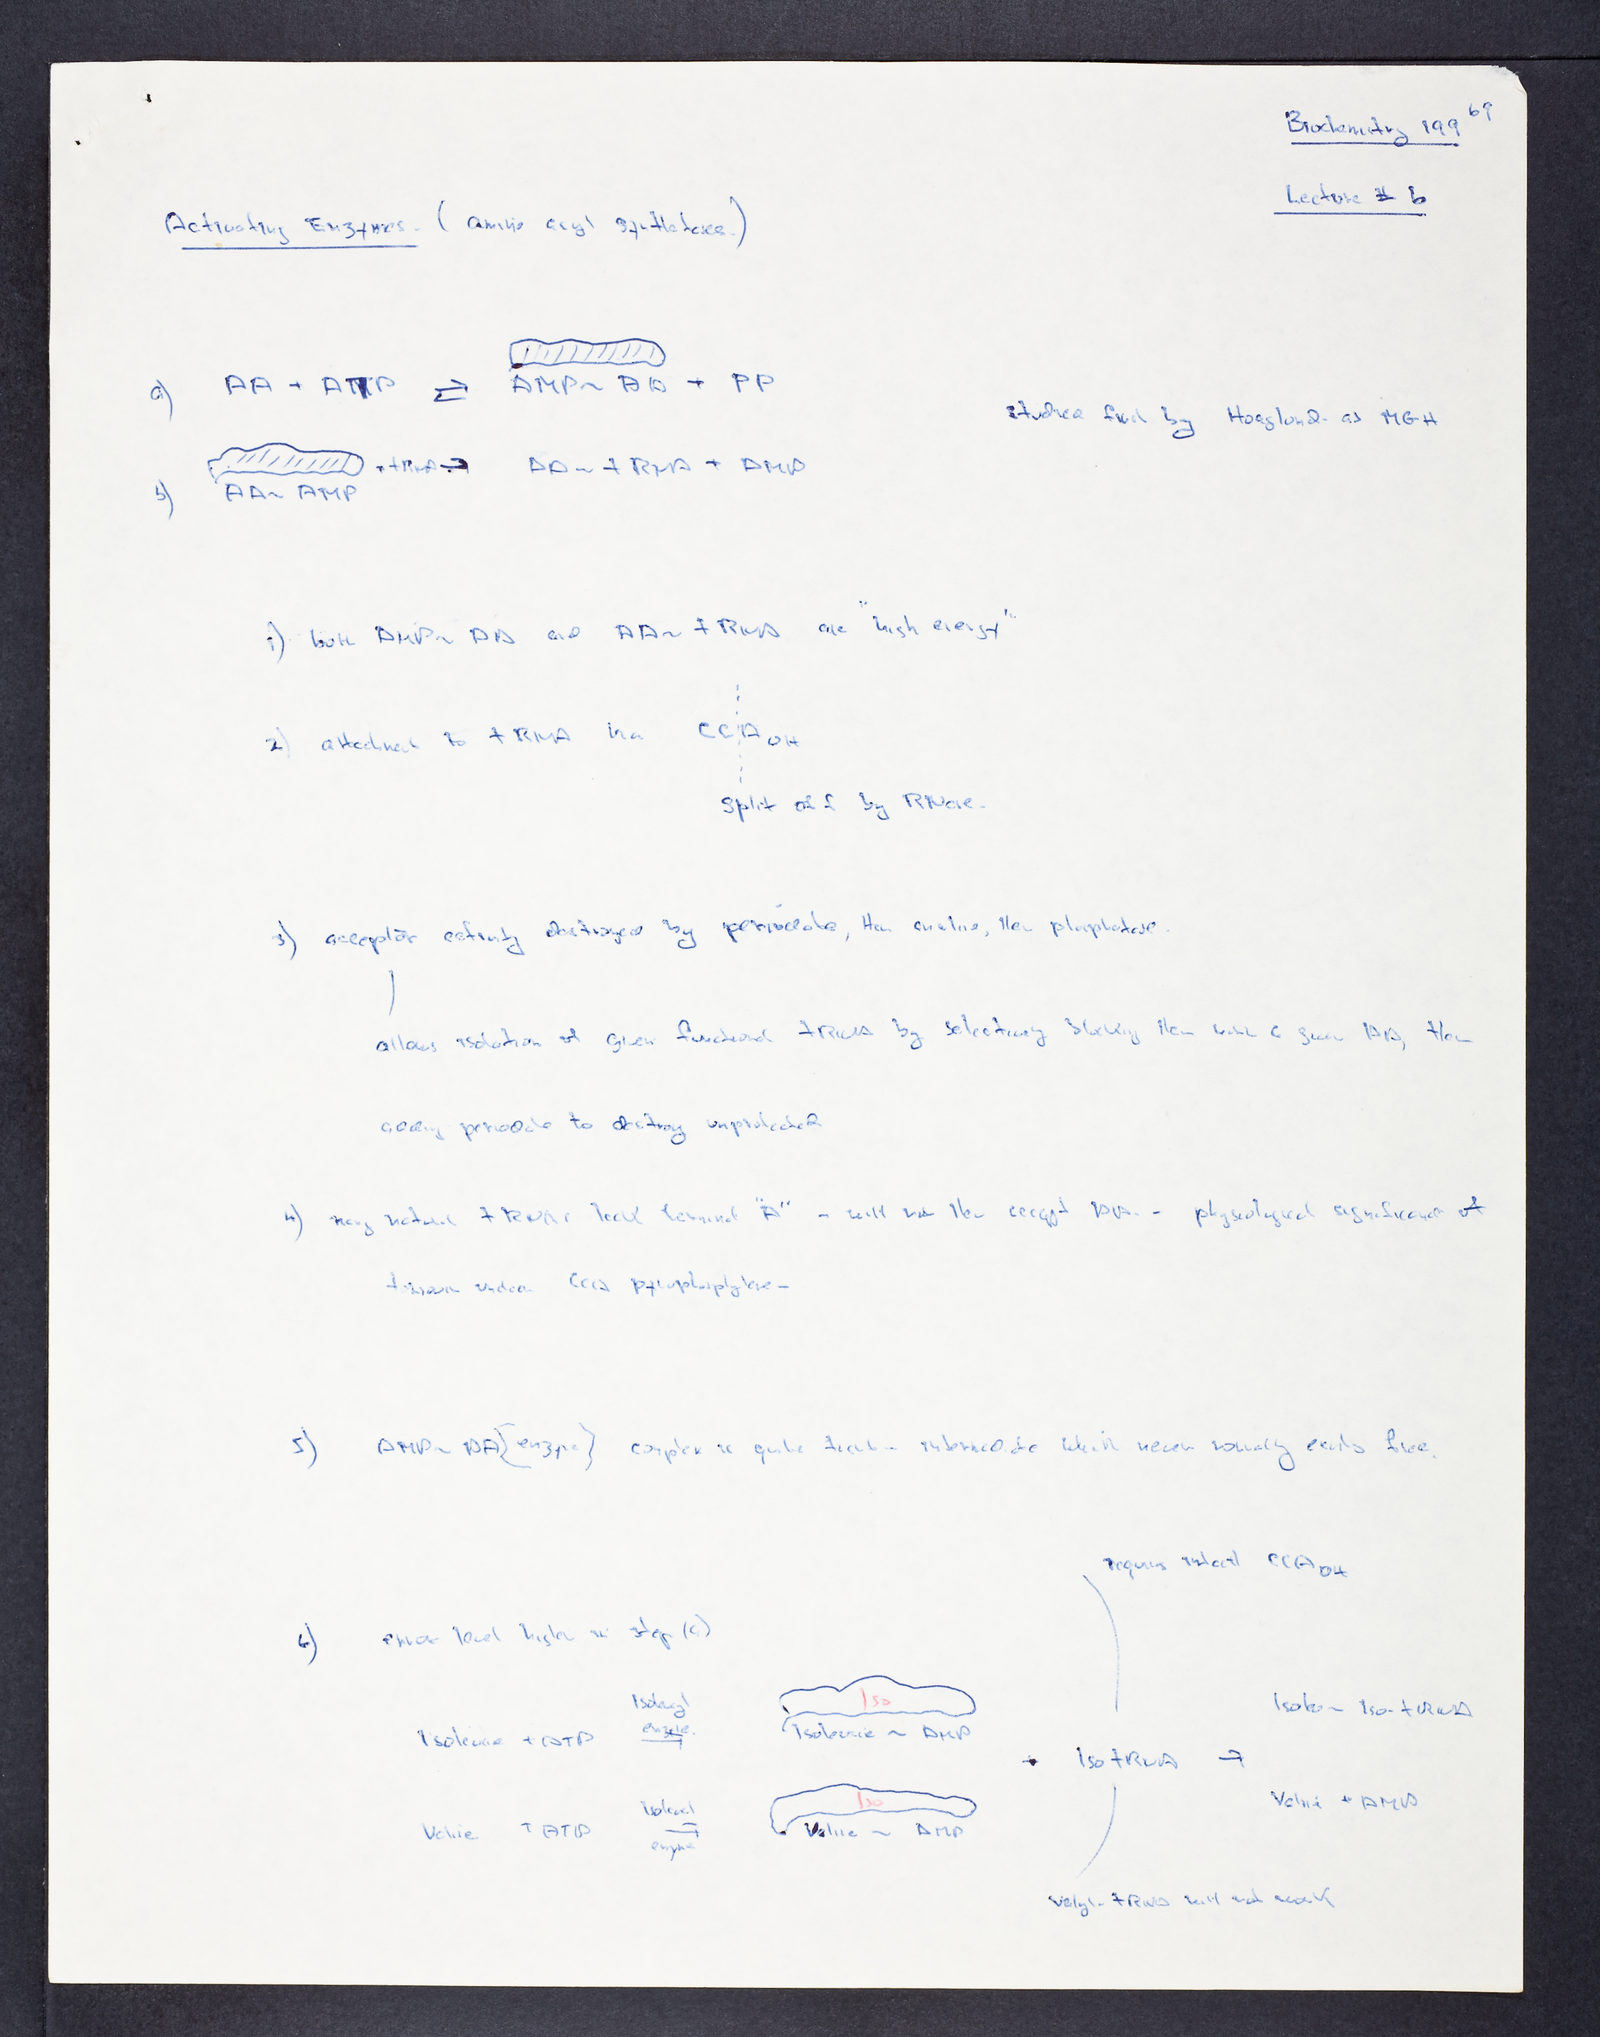 69
Biochemistry 199
Lecture # 6
Activating Enzymes. (amino acyl synthetases.)
a) AA + ATP ⇌ AMP~AA + PP
studied first by Hoagland at MGH
b) AA~AMP + tRNA → AA~tRNA + AMP
1) both AMP~AA and AA~tRNA are "high energy"
2) attachment to tRNA via CCA OH
split off by RNase.
3) acceptor activity destroyed by periodate, then aniline, then phosphatase.
allows isolation of given functional tRNA by selectively blocking them with a given AA, then
adding periodate to destroy unprotected
4) many natural tRNAs lack terminal "A" - will not then accept AA. - physiological significance of
CCA pyrophosphorylase -
5) AMP~AA {enzyme} complex is quite intermediate which never normally exists free.
requires intact CCA OH
6) error level higher in step (a)
Isoleucyl
Iso
Isoleu~ Iso-tRNA
enzyme.
Isoleucine + ATP → Isoleucine ~ AMP
+ Iso tRNA →
Iso
Valine + AMP
Isoleucyl
Valine + ATP → Valine ~ AMP
enzyme
Valyl-tRNA will not work